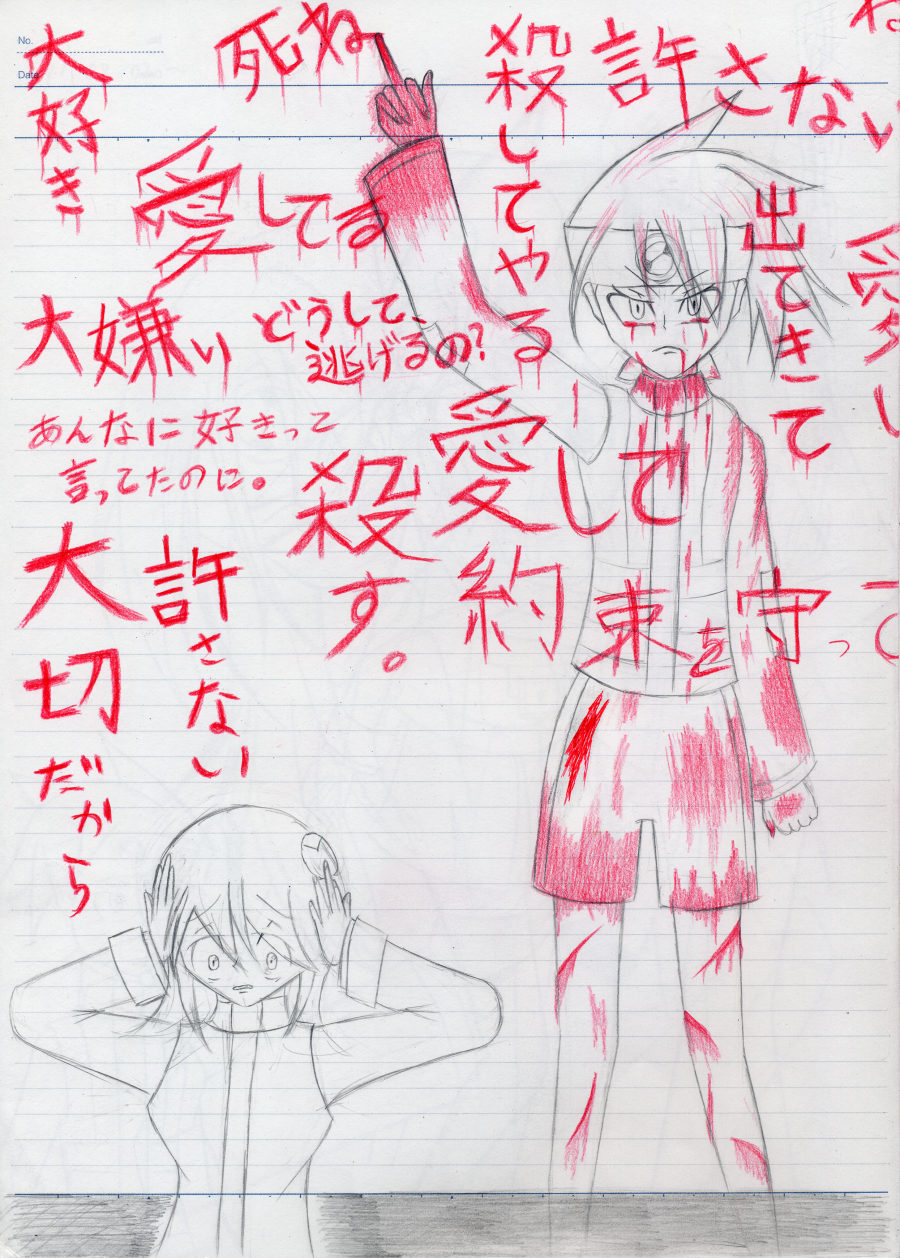 No.
Date
大好き
死ね
殺してやる
許さない
愛してる
出てきて
大嫌い
どうして、
逃げるの?
あんなに好きって
言ってたのに。
愛して
殺す。
約束を守って
大切だから
許さない